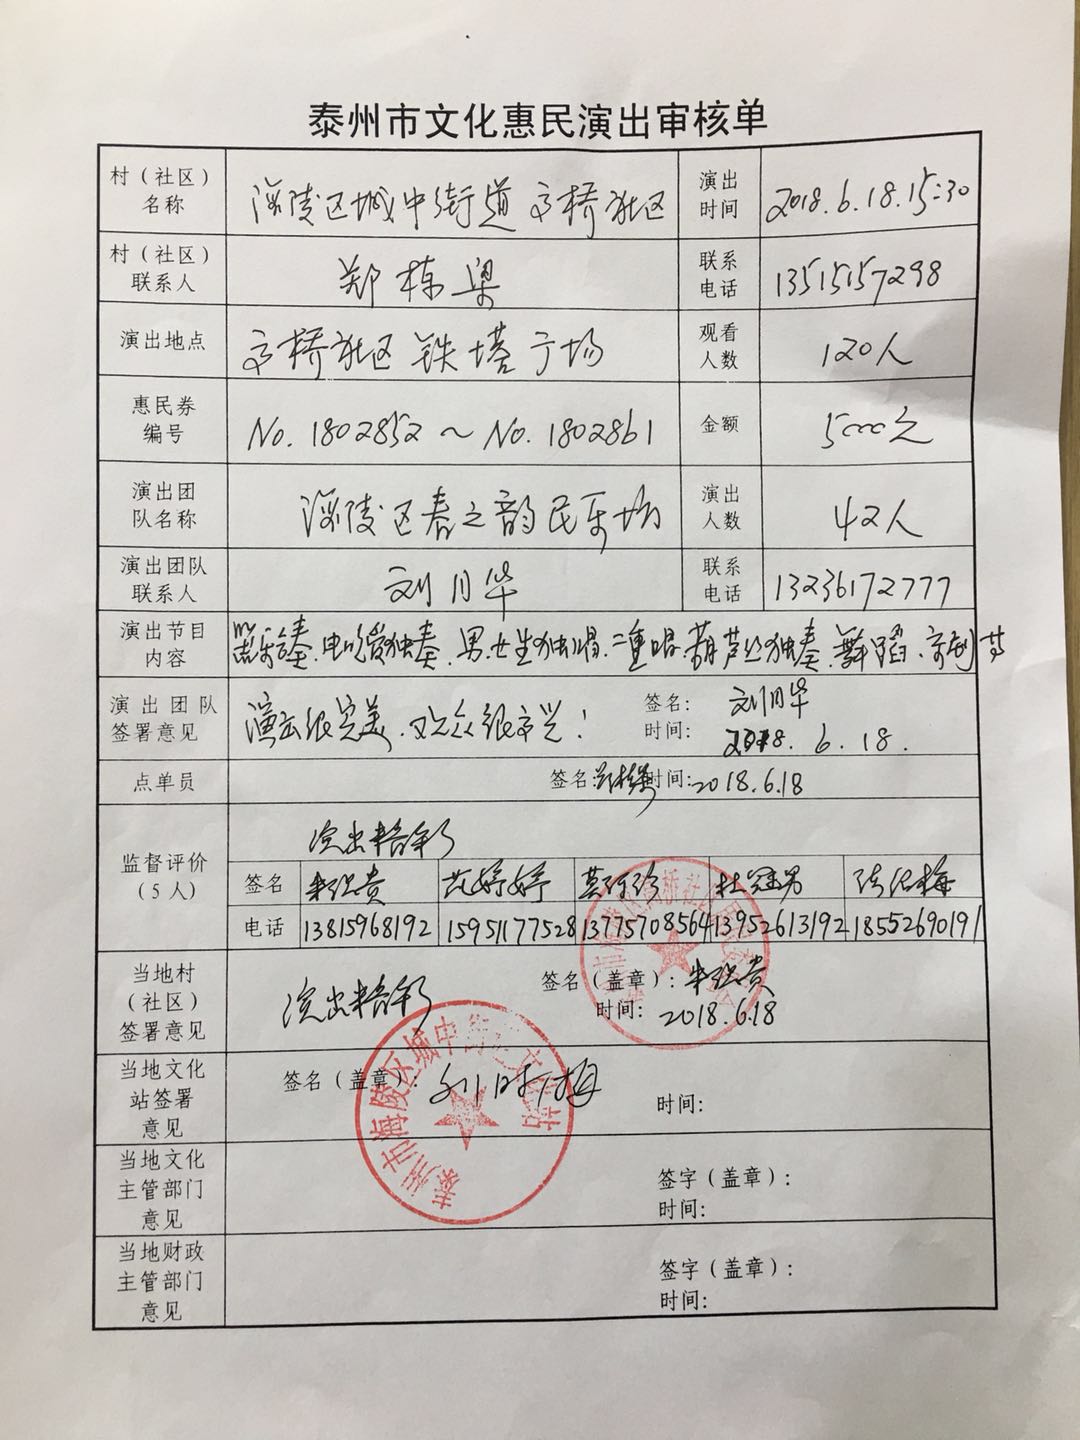 泰州市文化惠民演出审核单
村（社区）名称 海陵区城中街道高桥社区 演出时间 2018.6.18.15:30
村（社区）联系人 郑栋梁 联系电话 13515157298
演出地点 高桥社区铁塔广场 观看人数 120人
惠民券编号 No.1802852～No.1802861 金额 5000元
演出团队名称 海陵区春之韵民乐坊 演出人数 42人
演出团队联系人 刘月华 联系电话 13236172777
演出节目内容 器乐合奏、电吹管独奏、男、女生独唱、二重唱、葫芦丝独奏、舞蹈、京剧等
演出团队签署意见 演出很完美、观众很高兴！ 签名：刘月华
时间：2018.6.18.
点单员 签名：郑栋梁 时间：2018.6.18
监督评价（5人） 演出精彩
签名 朱强贵 范婷婷 杜冠男
电话 13815968192 15951177528 13775708564 13952613192 18552690191
当地村（社区）签署意见 演出精彩 签名（盖章）：朱强贵
时间：2018.6.18
当地文化站签署意见 签名（盖章）：
时间：
泰州市海陵区城中街道文化站
当地文化主管部门意见 签字（盖章）：
时间：
当地财政主管部门意见 签字（盖章）：
时间：